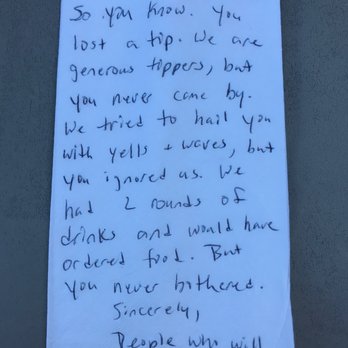 So you know. You
lost a tip. We are
generous tippers, but
you never came by.
We tried to hail you
with yells + waves, but
you ignored us. We
had 2 rounds of
drinks and would have
ordered food. But
you never bothered.
Sincerely,
People who will